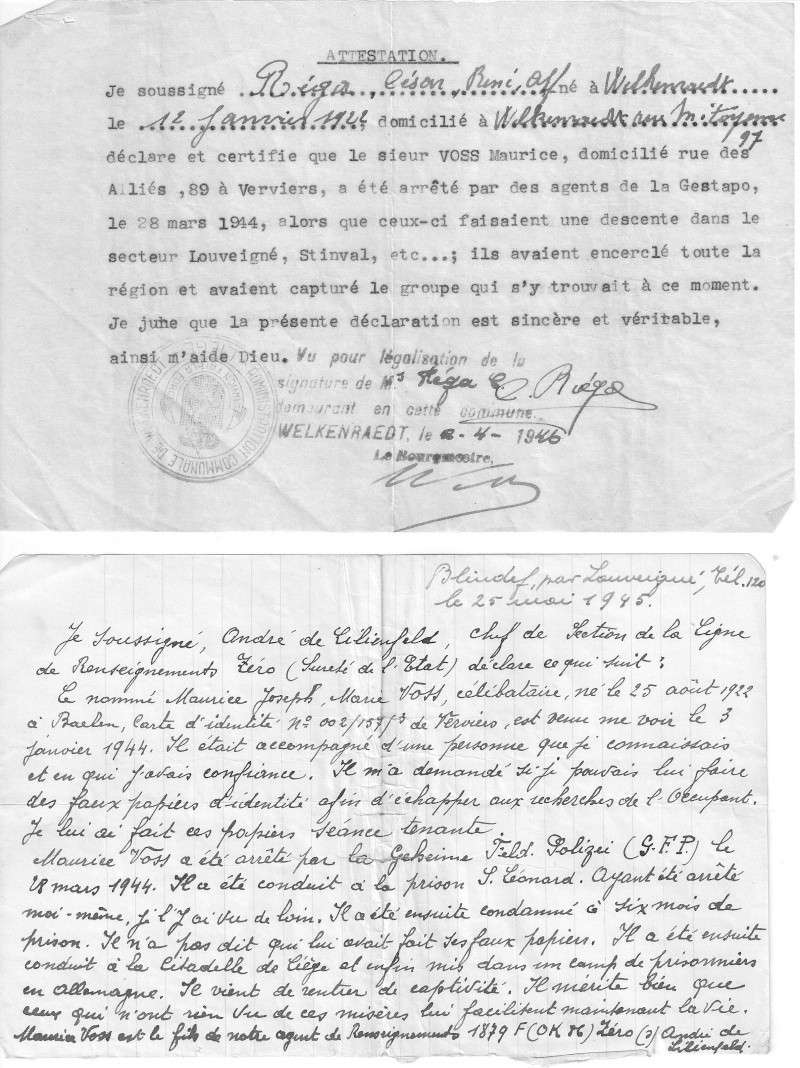 ATTESTATION.
Je soussigné . Riéga, César, René, Alf né à Welkenraedt.....
le ..12 Janvier 1922, domicilié à Welkenraedt rue Mitoyenne
97
déclare et certifie que le sieur VOSS Maurice, domicilié rue des
Alliés ,89 à Verviers, a été arrêté par des agents de la Gestapo,
le 28 mars 1944, alors que ceux-ci faisaient une descente dans le
secteur Louveigné, Stinval, etc...; ils avaient encerclé toute la
région et avaient capturé le groupe qui s'y trouvait à ce moment.
Je juhe que la présente déclaration est sincère et véritable,
ainsi m'aide Dieu. Vu pour légalisation de la
signature de Mr Riéga C. C. Riéga
demeurant en cette commune.
WELKENRAEDT, le 2-4-1946
Le Bourgmestre,
ADMINISTRATION COMMUNALE DE WELKENRAEDT
Blindef, par Louveigné, Tél. 120
le 25 mai 1945.
Je soussigné, André de Lilienfeld, chef de Section de la Ligne
de Renseignements Zéro (Sureté de l'Etat) déclare ce qui suit :
Le nommé Maurice Joseph, Marie Voss, célibataire, né le 25 août 1922
à Baelen, Carte d'identité No 002/157/3 de Verviers, est venu me voir le 3
janvier 1944. Il était accompagné d'une personne que je connaissais
et en qui j'avais confiance. Il m'a demandé si je pouvais lui faire
des faux papiers d'identité afin d'échapper aux recherches de l'Occupant.
Je lui ai fait ces papiers séance tenante.
Maurice Voss a été arrêté par la Geheime Feld. Polizei (G.F.P.) le
28 mars 1944. Il a été conduit à la prison S. Léonard. Ayant été arrêté
moi-même, je l'y ai vu de loin. Il a été ensuite condamné à six mois de
prison. Il n'a pas dit qui lui avait fait ses faux papiers. Il a été ensuite
conduit à la Citadelle de Liége et enfin mis dans un camp de prisonniers
en Allemagne. Il vient de rentrer de captivité. Il mérite bien que
ceux qui n'ont rien vu de ces misères lui facilitent maintenant la vie.
Maurice Voss est le fils de notre agent de Renseignements 1879 F (OK 86) Zéro (s) André de
Lilienfeld.